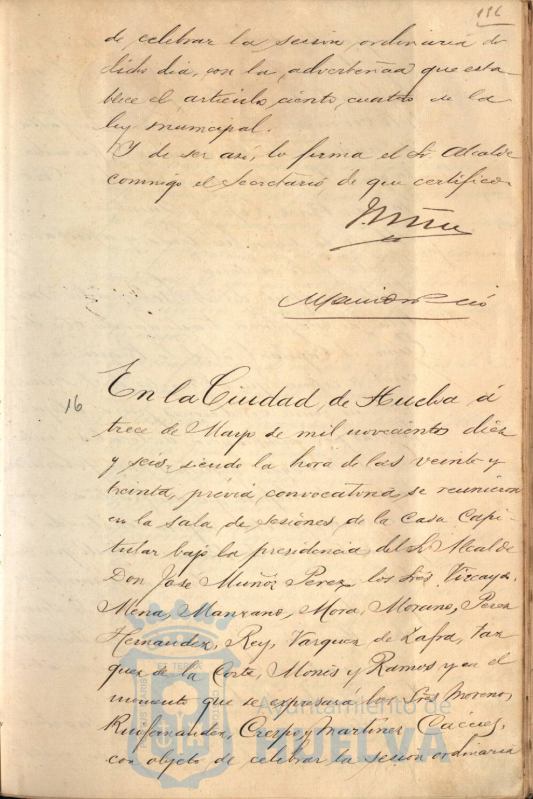 de celebrar la sesión ordinaria de
dicho dia, con la advertencia que esta-
blece el artículo ciento cuatro de la
ley municipal.
Y de ser así, lo firma el Sr. Alcalde
conmigo el Secretario de que certifico.
16
En la Ciudad de Huelva á
trece de Mayo de mil novecientos diez
y seis, siendo la hora de las veinte y
treinta, prévia convocatoria, se reunieron
en la sala de sesiones de la Casa Capi-
tular bajo la presidencia del Sr. Alcalde
Don José Muñoz Perez, los Sres. Vizcaya,
Mena, Manzano, Mora, Moreno, Perez
Hernandez, Rey, Vazquez de Zafra, Vaz
quez de la Corte, Monís y Ramos y en el
momento que se expresará los Sres Moreno,
Ruifernandez, Crespo y Martínez Cácicles,
con objeto de celebrar la sesión ordinaria
Ayuntamiento de
HUELVA